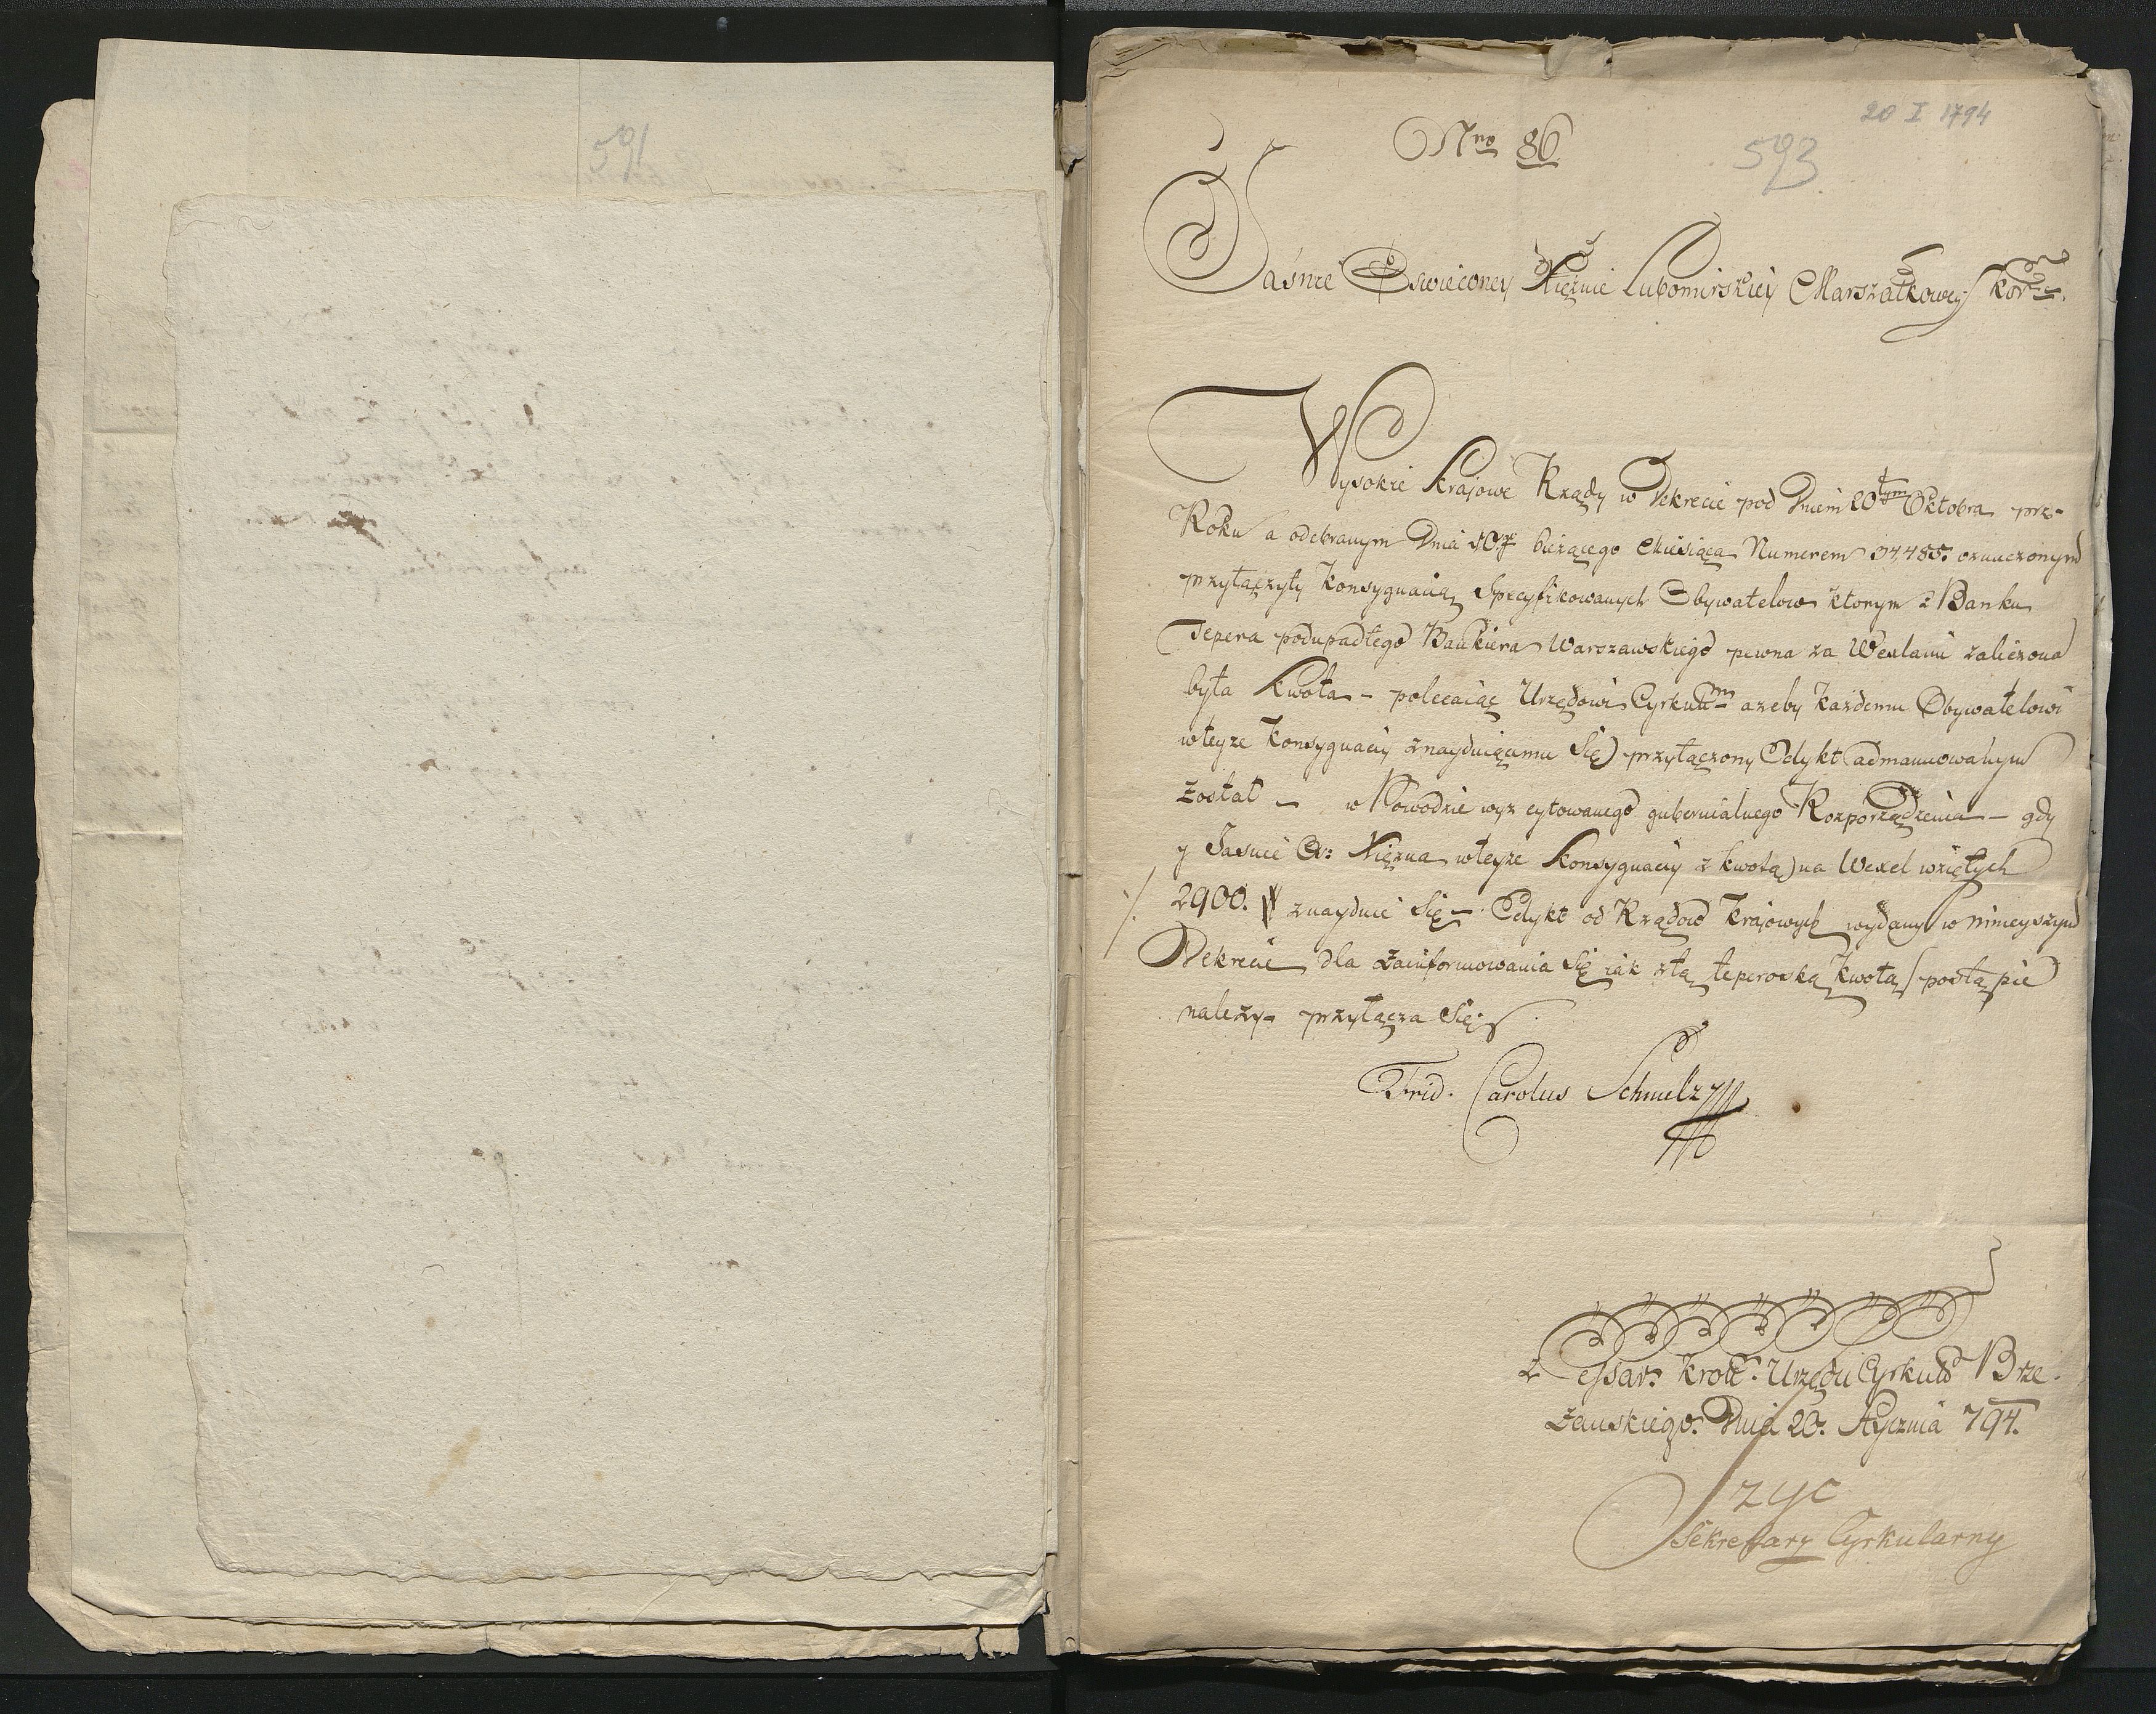 591
20 I 1794
Nro 86
593
Jaśnie Oswieconey Xiężnie Lubomirskiey Marszałkowey Kor:
Wysokie Krajowe Rządy w Dekrecie pod Dniem 20tym Oktobra prz=
Roku a odebranym Dnia 10go bieżącego Miesiąca Numerem 34,485. oznaczonym
przyłączyły Konsygnacią Specyfikowanych Obywatelow ktorym z Banku
Tepera podupadłego Bankiera Warszawskiego pewna za Wexlami zaliczona
była Kwota – polecaiąc Urzędowi Cyrkulm azeby Kazdemu Obywatelowi
w teyze Konsygnacij znayduiącemu Się przyłączony Edykt admanuowanym
został – w Powodzie wyz cytowanego gubernialnego Rozporządzenia – gdy
y Jasnie Os: Xiężna w teyze Konsygnacij z kwotą na Wexel wziętych
2900. # znayduie Się – Edykt od Rządow Krajowych wydany w ninieyszym
Dekrecie dla Zainformowania Się iak z tą teperoską Kwotą postąpic
nalezy= przyłącza Się.
Frid. Carolus Schmelz
Z Cessar: Krolc: Urzędu Cyrkulo Brze.
Zanskiego. Dnia 20. Stycznia 794.
Szyc
Sekretarz Cyrkularny